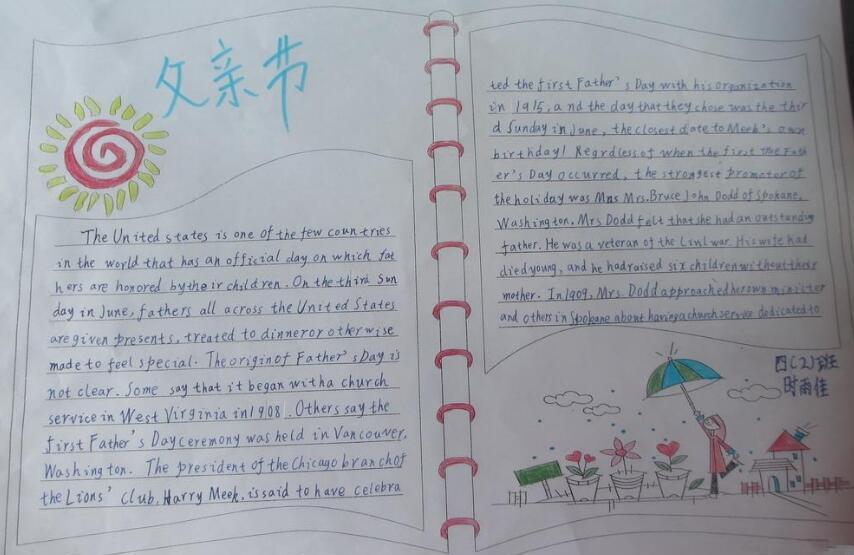 父亲节
The United states is one of the few countries
in the world that has an official day on which fat
hers are honored by their children. On the third Sun
day in June, fathers all across the United States
are given presents, treated to dinner or otherwise
made to feel special. The origin of Father's Day is
not clear. Some say that it began with a church
service in West Virginia in 1908. Others say the
first Father's Day ceremony was held in Vancouver,
Washington. The president of the Chicago branch of
the Lions' Club, Harry Meek, is said to have celebra
ted the first Father's Day with his organization
in 1915; and the day that they chose was the thir
d Sunday in June, the closest date to Meek's own
birthday! Regrdless of when the first the Fath
er's Day occurred, the strongest promoter of
the holiday was Mns Mrs. Bruce John Dodd of Spokane,
Washington. Mrs Dodd felt that she had an outstanding
father. He was a veteran of the war. His wife had
died young, and he had raised six children without their
mother. In 1909, Mrs. Dodd approached her own minister
and others in Spokane about having a church service dedicated to
四(2)班
时雨佳